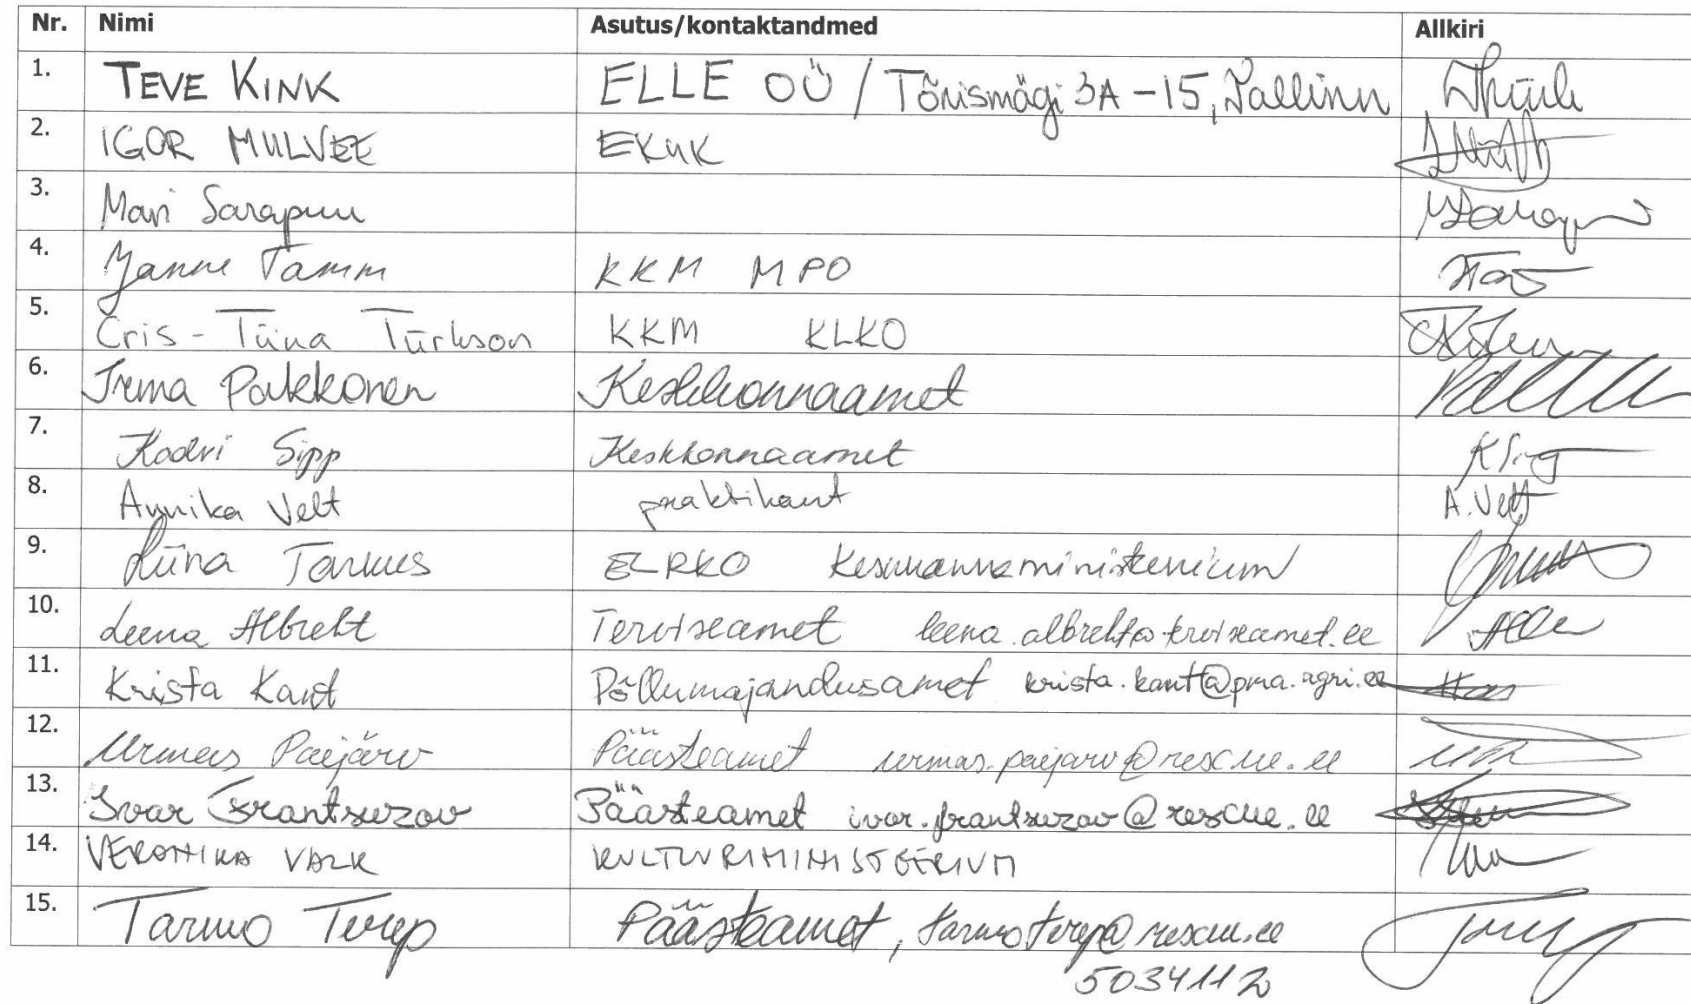 Nr. Nimi Asutus/kontaktandmed Allkiri
1. TEVE KINK ELLE OÜ / Tõnismägi 3A-15, Tallinn
2. IGOR MULVEE EKUK
3. Mari Sarapuu
4. Janne Tamm KKM MPO
5. Cris-Tiina Türkson KKM KLKO
6. Irma Pakkonen Keskkonnaamet
7. Kadri Sipp Keskkonnaamet
8. Annika Velt praktikant A. Velt
9. Liina Tarmes Keskkonnaministeerium
10. Leena Albreht Terviseamet leena.albreht@terviseamet.ee
11. Krista Kant Põllumajandusamet krista.kant@pma.agri.ee
12. Urmas Paejärv Päästeamet urmas.paejarv@rescue.ee
13. Ivar Frantsuzov Päästeamet ivar.frantsuzov@rescue.ee
14. VERONIKA VALK KULTUURIMINISTEERIUM
15. Tarmo Terep Päästeamet, tarmo.terep@rescue.ee
5034112